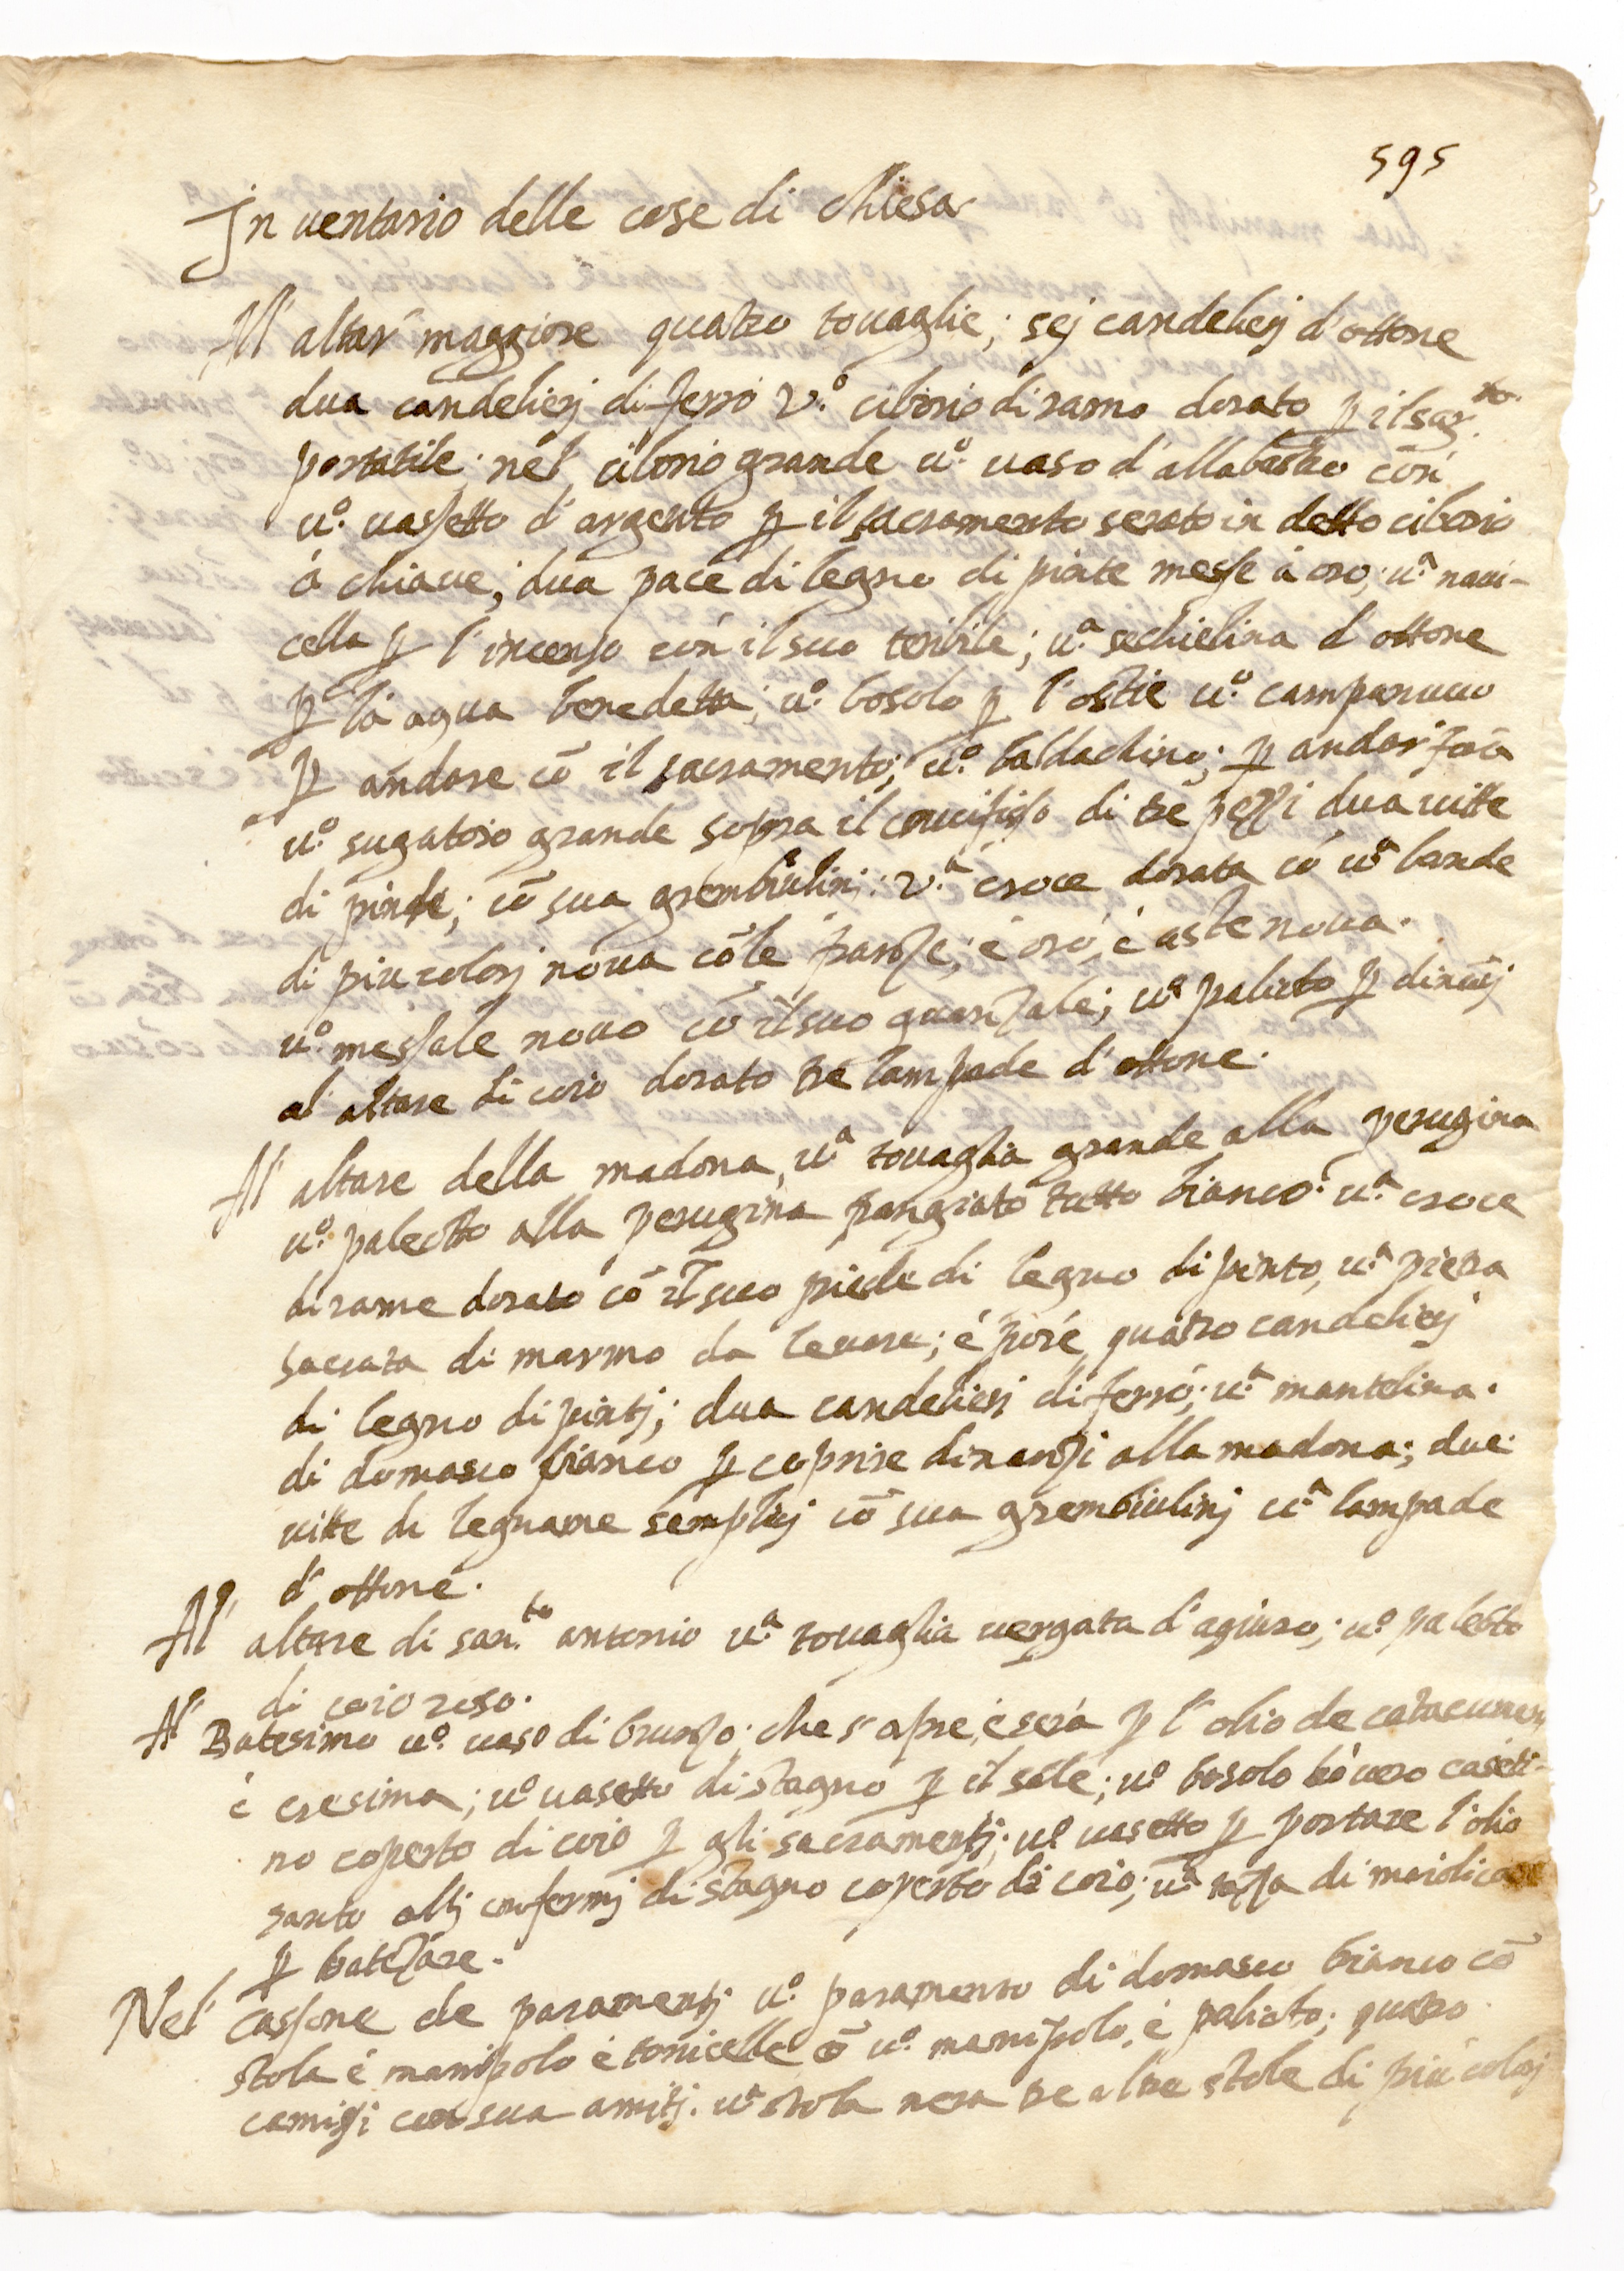 595
In ventario delle cose di chiesa
All' altar' maggiore quatro touaglie; sej candelierj d'ottone
dua candelierj di ferro v.º ciborio di ramo dorato ꝑ il sag.ᵗᵒ
portatile; nel' ciborio grande u.º uaso d'allabastro con
u.º uassetto d'argento ꝑ il sacramento serato in detto ciborio
à chiaue; dua pace di legno di pinte messe à oro; u.ª naui-
cella ꝑ l'incenso con il suo teribile; u.ª sechielina d'ottone
ꝑ la aqua benedetta; u.º bosolo ꝑ l'ostie u.º campanuco
ꝑ andare cō il sacramento; u.º baldachino; ꝑ andar fora
u.º sugatoio grande sopra il crucifisso di tre pezzi dua uitte
di pinte; cō sua grembiulinj: v.ª croce dorata cō u.ª bande
di piu colorj noua cō le franze; è oro, è aste noua.
u.º messale nouo cō il suo guanzale; u.º palioto ꝑ dināzj
al altare di coio dorato tre lampade d'ottone.
Al' altare della madona, u.ª touaglia grande alla perugina
u.º paleotto alla perugina frangiato tutto bianco: u.ª croce
di rame dorato cō il suo piede di legno di pinto, u.ª pietra
sacrata di marmo da leuare; è porè, quatro candelierj
di legno di pintj; dua candelieri di ferro; u.ª mantelina.
di domasco bianco ꝑ coprire dinanzi alla madona; due
uitte di legname semplicj cō sua grembiulinj u.ª lampade
d'ottone.
Al' altare di san.ᵗᵒ antonio u.ª touaglia uergata d'agiuro; u.º paleoto
di coio roso.
Al' Batesimo u.º uaso di brunzo; che s'apre, è sera ꝑ l'olio de catacumen
è cresima; u.º uasetto di stagno ꝑ il sale; u.º bosolo ò uero caseti-
no coperto di coio ꝑ gli sacramentj; u.º uasetto ꝑ portare l'olio
santo alli infermj di stagno coperto di coio; u.ª tazza di maiolica
ꝑ batezare.
Nel' cassone de paramentj u.º paramento di domasco bianco cō
stola è manipolo è tonicelle cō u.º manipolo, è palioto; quatro
camisi con sua amitj. u.ª stola nera tre altre stole di più colorj